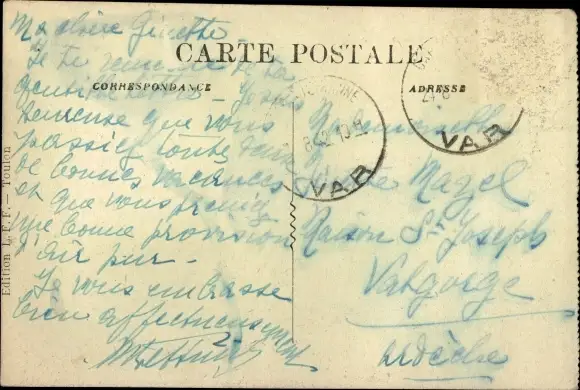 Ma chère Ginette
Je te remercie de ta
gentille – Je suis
heureuse que vous
passiez toutes deux
de bonnes vacances
et que vous preniez
une bonne provision
d'air pur –
Je vous embrasse
bien affectueusement
CARTE POSTALE
CORRESPONDANCE
ADRESSE
Edition L. F. F. – Toulon
VAR
VAR
Mademoiselle
Nazel
Maison St Joseph
Valgorge
Ardèche